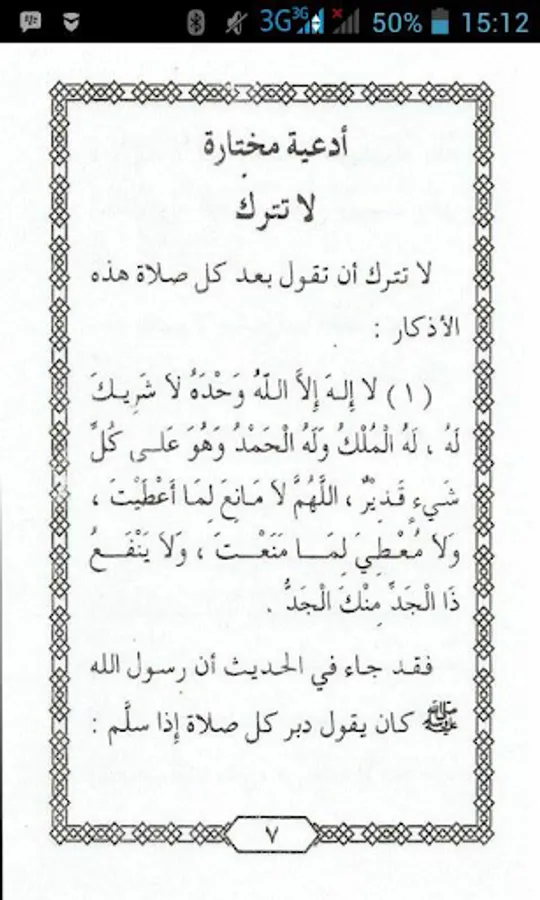 3G 3G 50% 15:12
أدعية مختارة
لا تترك
لا تترك أن تقول بعد كل صلاة هذه
الأذكار :
(١) لا إِلهَ إِلاَّ اللَّهُ وَحْدَهُ لاَ شَرِيكَ
لَهُ ، لَهُ الْمُلْكُ وَلَهُ الْحَمْدُ وَهُوَ عَلَى كُلِّ
شَيءٍ قَدِيْرٌ ، اللَّهُمَّ لاَ مَانِعَ لِمَا أَعْطَيْتَ ،
وَلاَ مُعْطِيَ لِمَا مَنَعْتَ ، وَلاَ يَنْفَعُ
ذَا الْجَدِّ مِنْكَ الْجَدُّ .
فقد جاء في الحديث أن رسول الله
ﷺ كان يقول دبر كل صلاة إذا سلَّم :
٧